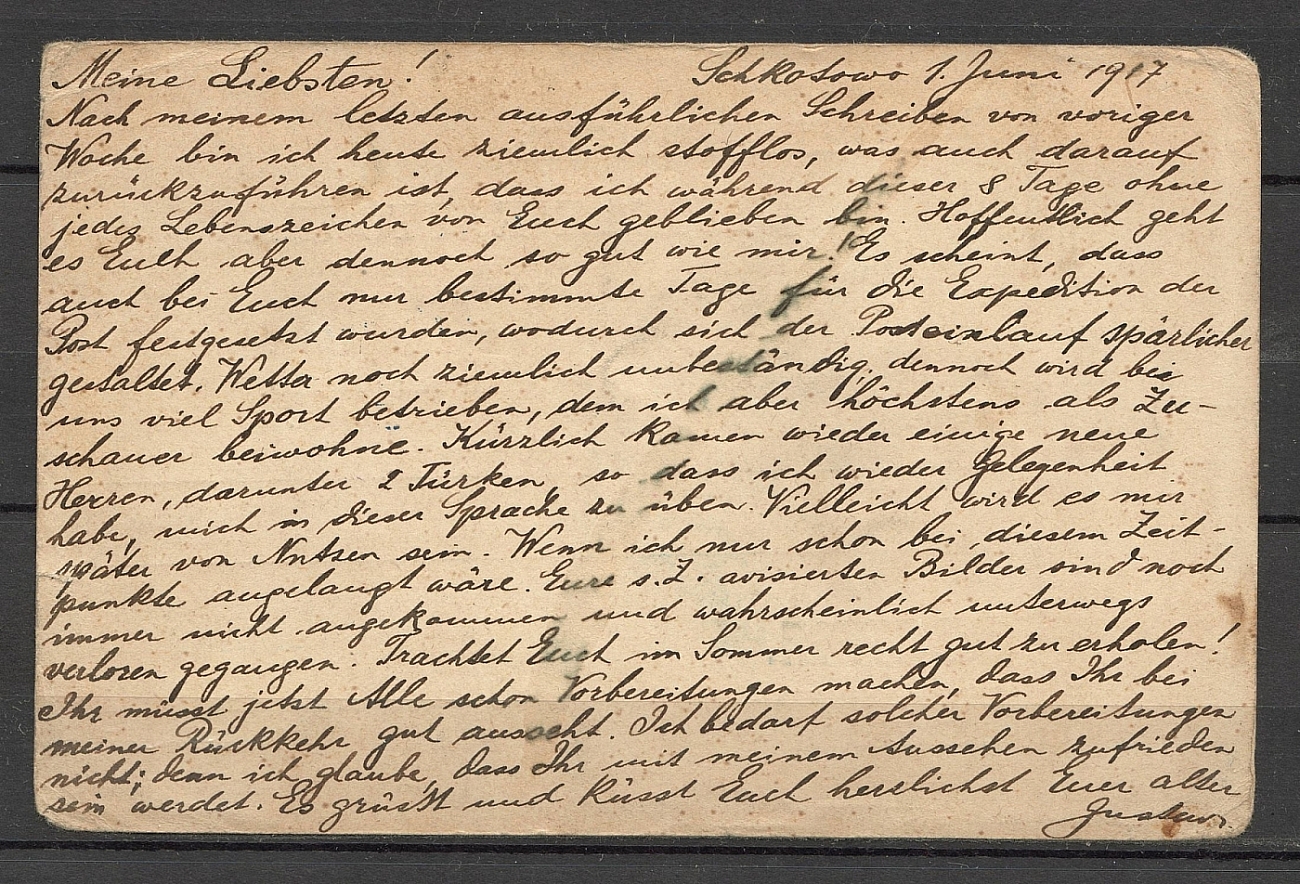 Meine Liebsten! Schkotowo 1. Juni 1917
Nach meinem letzten ausführlichen Schreiben von voriger
Woche bin ich heute ziemlich stofflos, was auch darauf
zurückzuführen ist, dass ich während dieser 8 Tage ohne
jedes Lebenszeichen von Euch geblieben bin. Hoffentlich geht
es Euch aber dennoch so gut wie mir! Es scheint, dass
auch bei Euch nur bestimmte Tage für die Expedition der
Post festgesetzt wurden, wodurch sich der Posteinlauf spärlicher
gestaltet. Wetter noch ziemlich unbeständig, dennoch wird bei
uns viel Sport betrieben, dem ich aber höchstens als Zu-
schauer beiwohne. Kürzlich kamen wieder einige neue
Herren, darunter 2 Türken, so dass ich wieder Gelegenheit
habe, mich in dieser Sprache zu üben. Vielleicht wird es mir
später von Nutzen sein. Wenn ich nur schon bei diesem Zeit-
punkte angelangt wäre. Eure s. Z. avisierten Bilder sind noch
immer nicht angekommen und wahrscheinlich unterwegs
verloren gegangen. Trachtet Euch im Sommer recht gut zu erholen!
Ihr müsst jetzt Alle schon Vorbereitungen machen, dass Ihr bei
meiner Rückkehr gut ausseht. Ich bedarf solcher Vorbereitungen
nicht; denn ich glaube, dass Ihr mit meinem Aussehen zufrieden
sein werdet. Es grüsst und küsst Euch herzlichst Euer alter
Gustav.